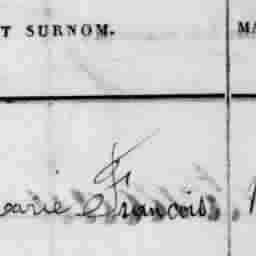 T SURNOM. MA
arie François